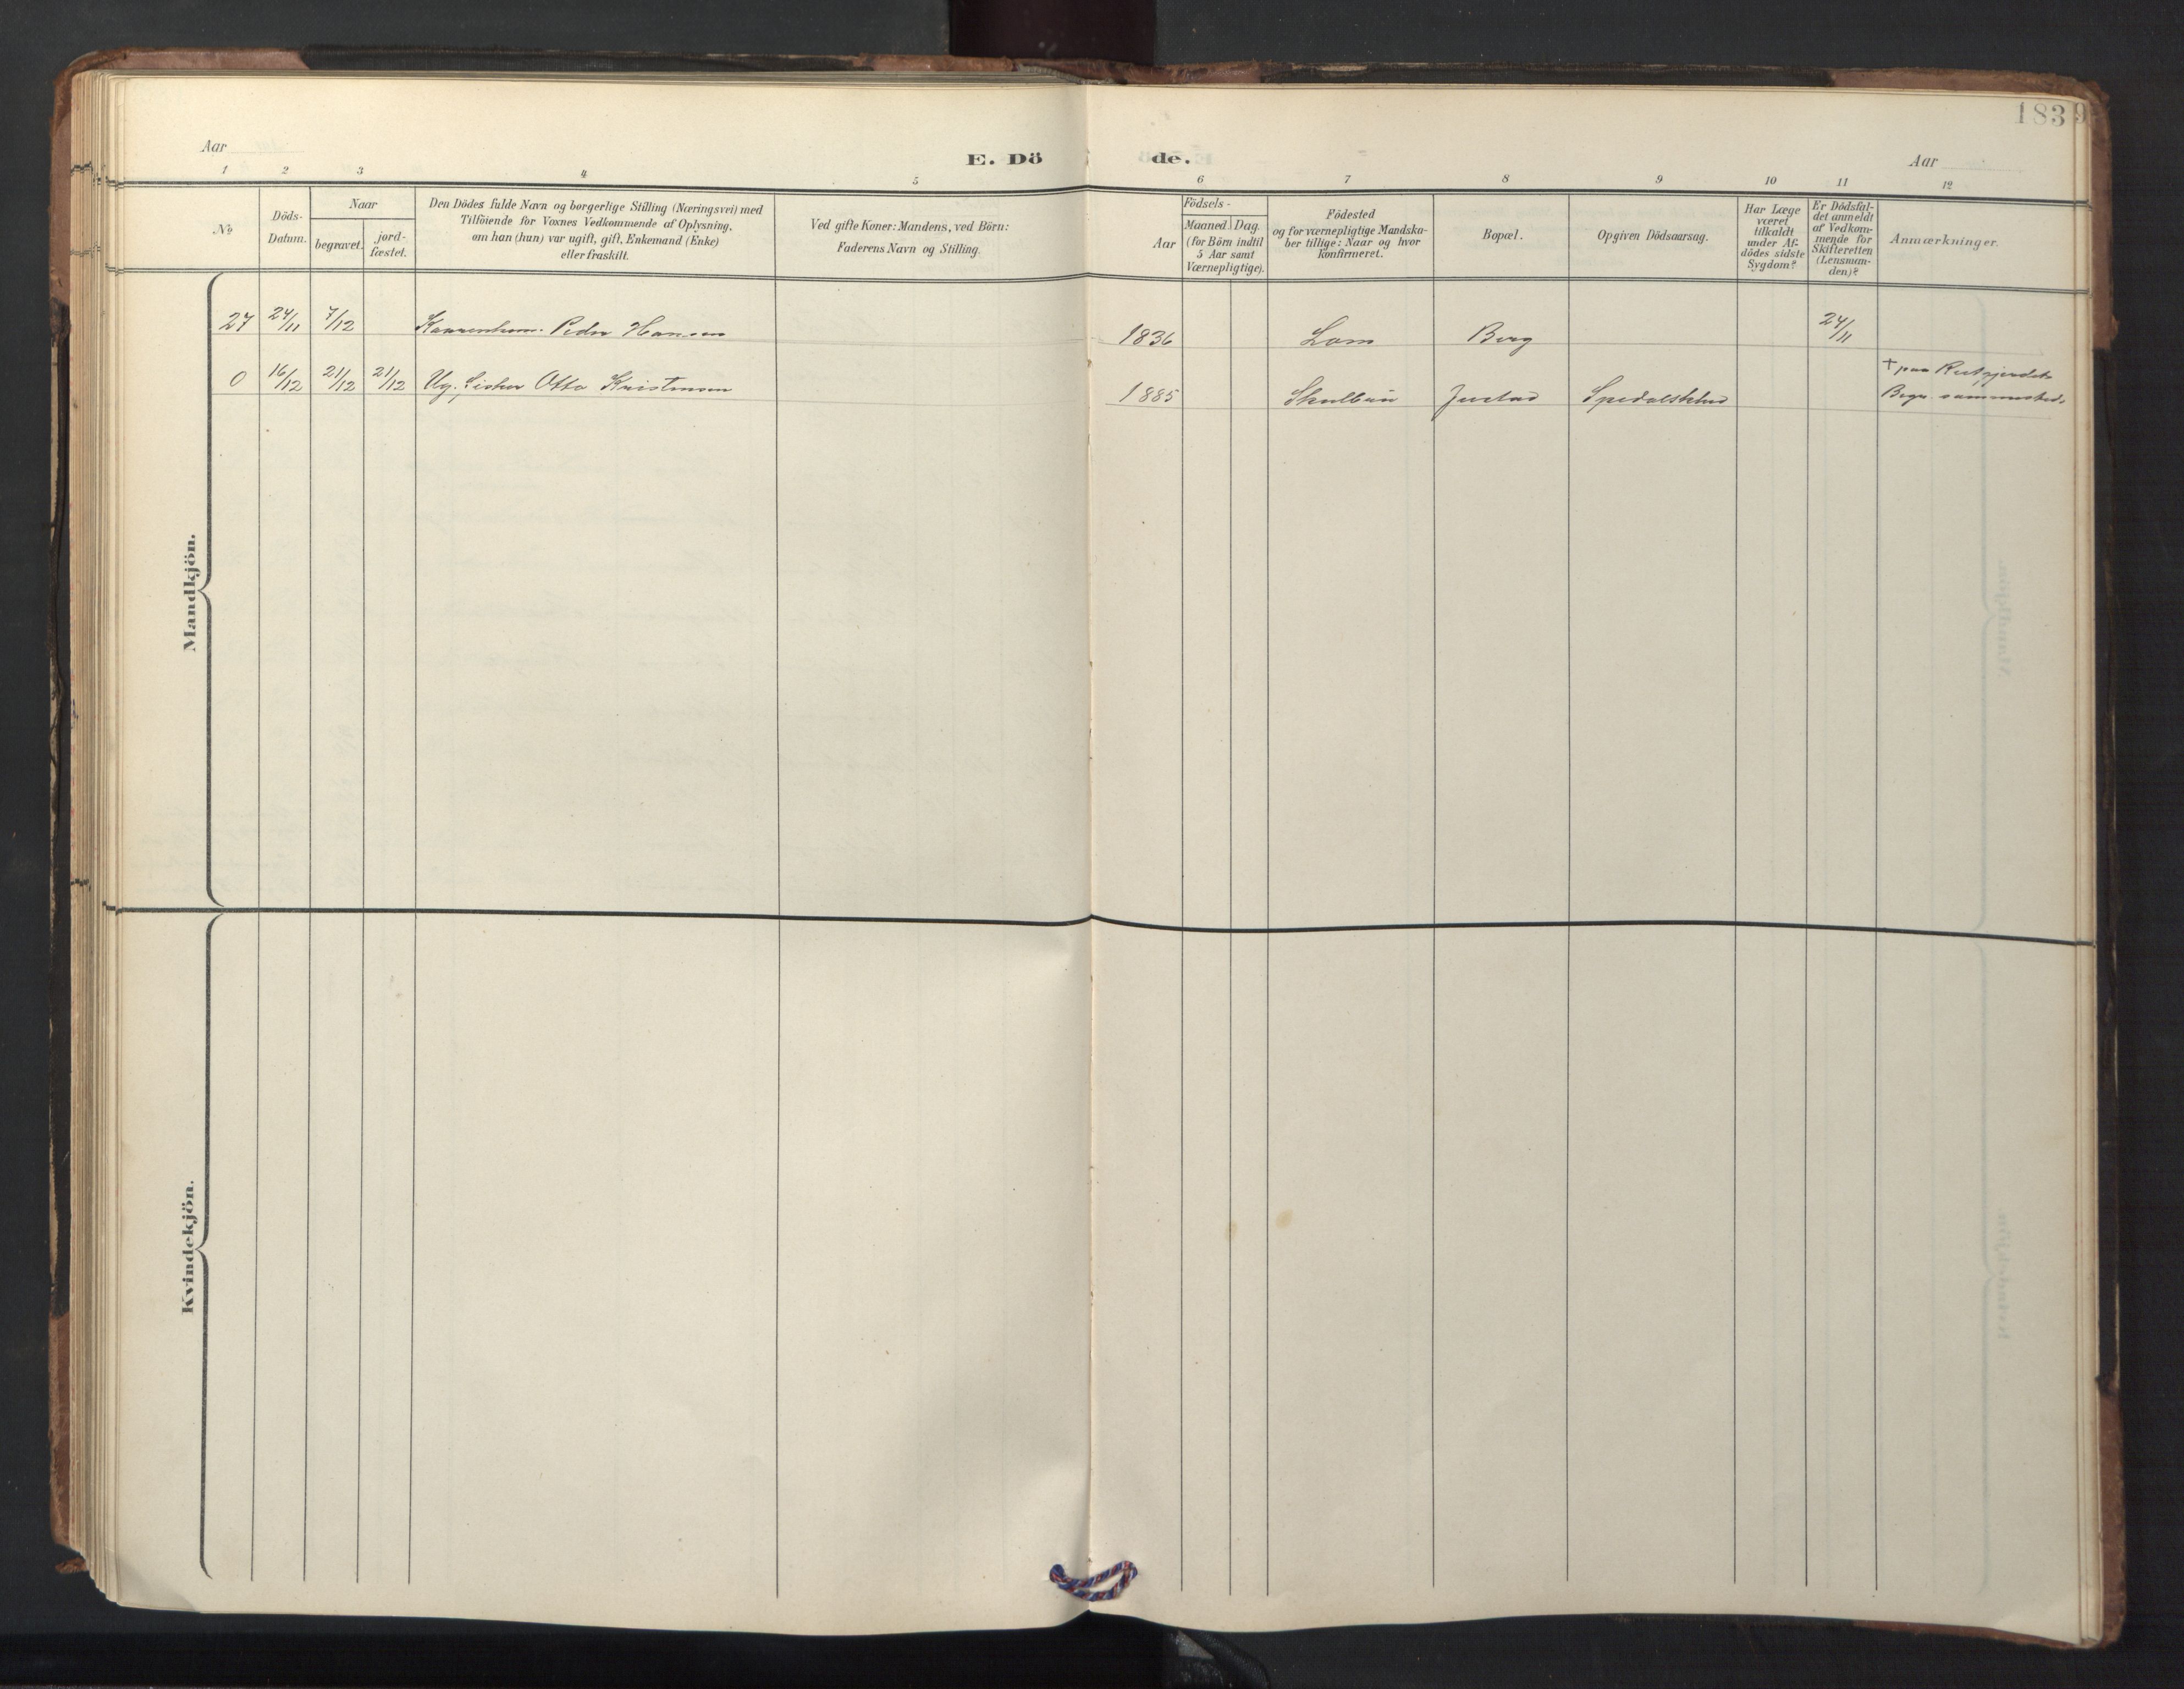 1839
Aar
E. Döde.
Aar
1 2 3 4 5 6 7 8 9 10 11 12
No
Döds-
Datum.
Naar
begravet.
jord-
fæstet.
Den Dödes fulde Navn og borgerlige Stilling (Næringsvei) med
Tilföiende for Voxnes Vedkommende af Oplysning,
om han (hun) var ugift, gift, Enkemand (Enke)
eller fraskilt.
Ved gifte Koner: Mandens, ved Börn:
Faderens Navn og Stilling.
Födsels-
Aar
Maaned. Dag.
(for Börn indtil
5 Aar samt
Værnepligtige).
Födested
og for værnepligtige Mandska-
ber tillige: Naar og hvor
konfirmeret.
Bopæl.
Opgiven Dödsaarsag.
Har Læge
været
tilkaldt
under Af-
dödes sidste
Sygdom?
Er Dödsfal-
det anmeldt
af Vedkom-
mende for
Skifteretten
(Lensman-
den)?
Anmærkninger.
Mandkjön.
27 24/11 7/12 Peder Hansen 1836 Lom Berg 24/11
0 16/12 21/12 21/12 Ug. Fisker Otto Kristensen 1885 Justad Spedalskhed
† paa
Begr. sammesteds
Kvindekjön.